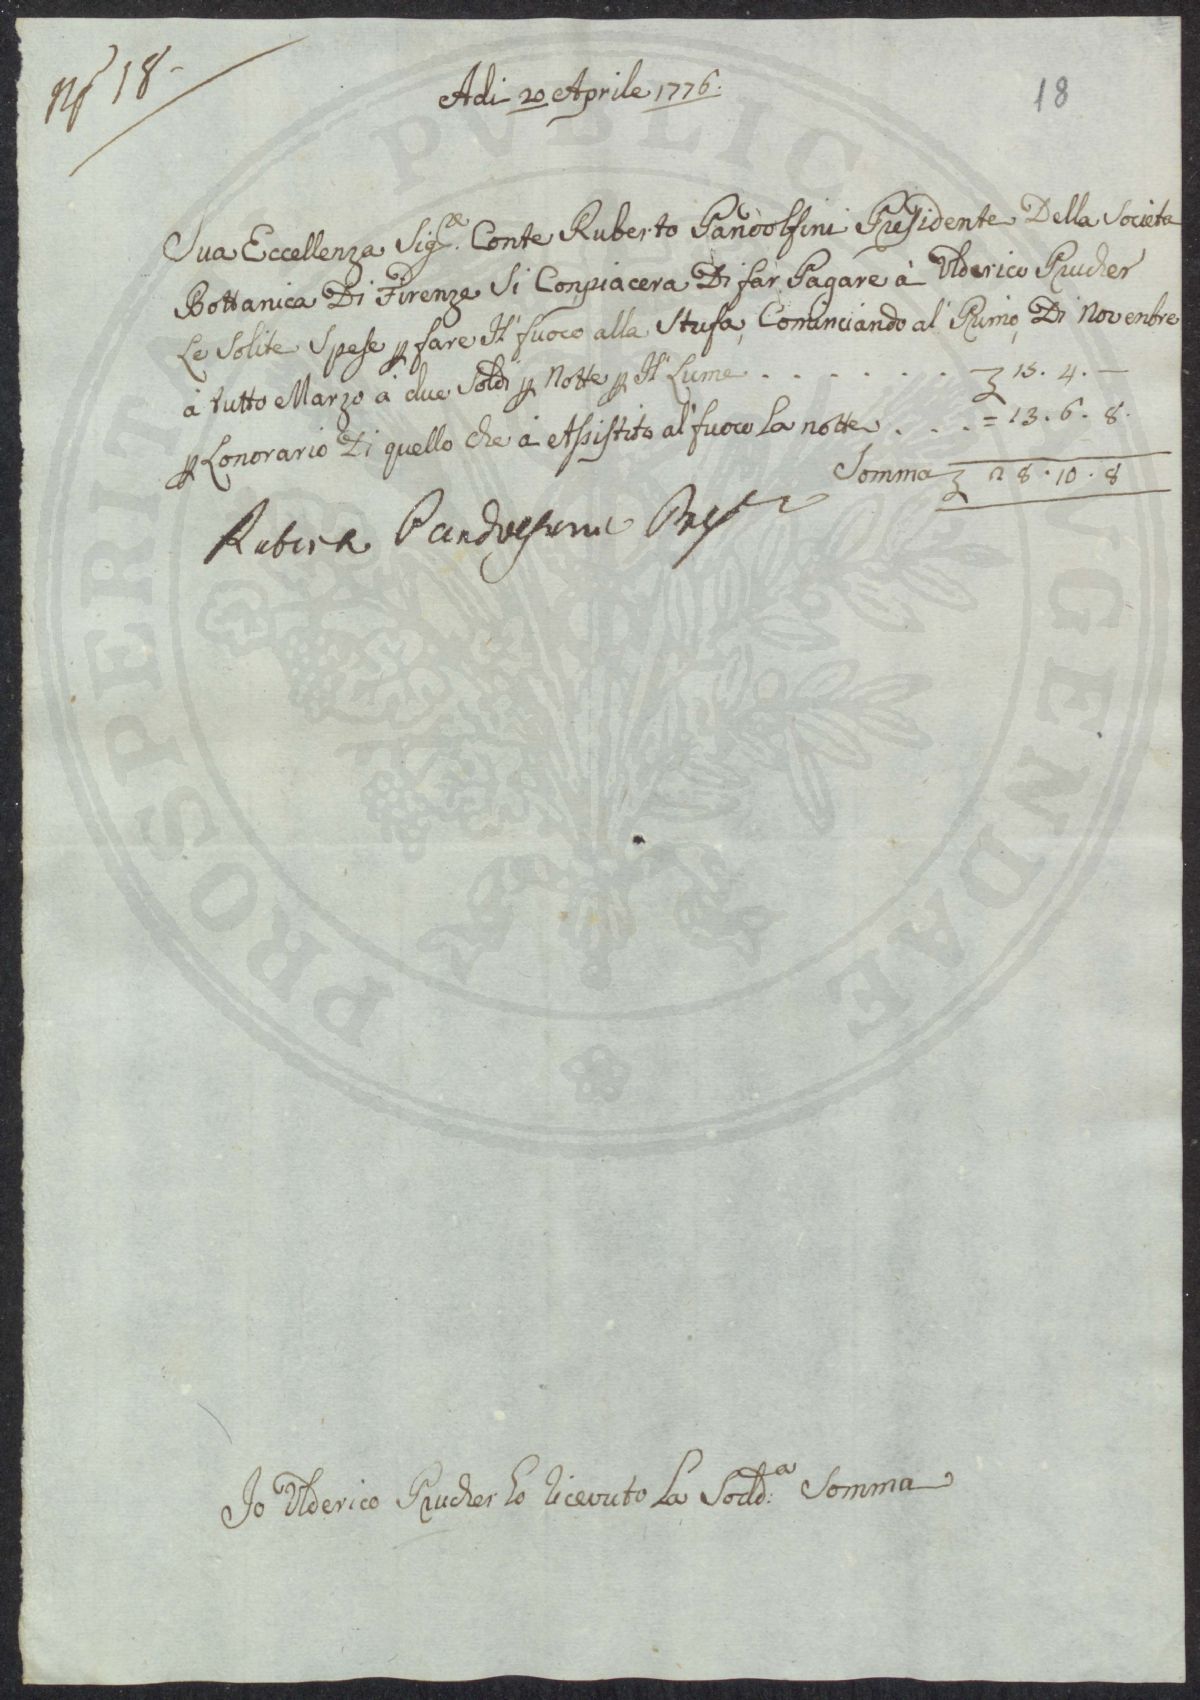 Nº 18
Adi 20 Aprile 1776.
18
Sua Eccellenza Sigre. Conte Ruberto Pandolfini Presidente Della Societa
Bottanica Di Firenze Si Conpiacera Di far Pagare à Ulderico Prucher
Le Solite Spese p fare Il' fuoco alla Stufa, Cominciando al' Primo, Di Novenbre
à tutto Marzo à due Soldi p Notte p Il' Lume . . . . . . . 15. 4. —
p Lonorario Di quello che à Assistito al' fuoco La notte . . . . = 13. 6. 8.
Somma 28. 10. 8
Ruberto Pandolfini Preste
Io Ulderico Prucher ho ricevuto La Sodda. Somma
PROSPERITATI PVBLICAE AVGENDAE